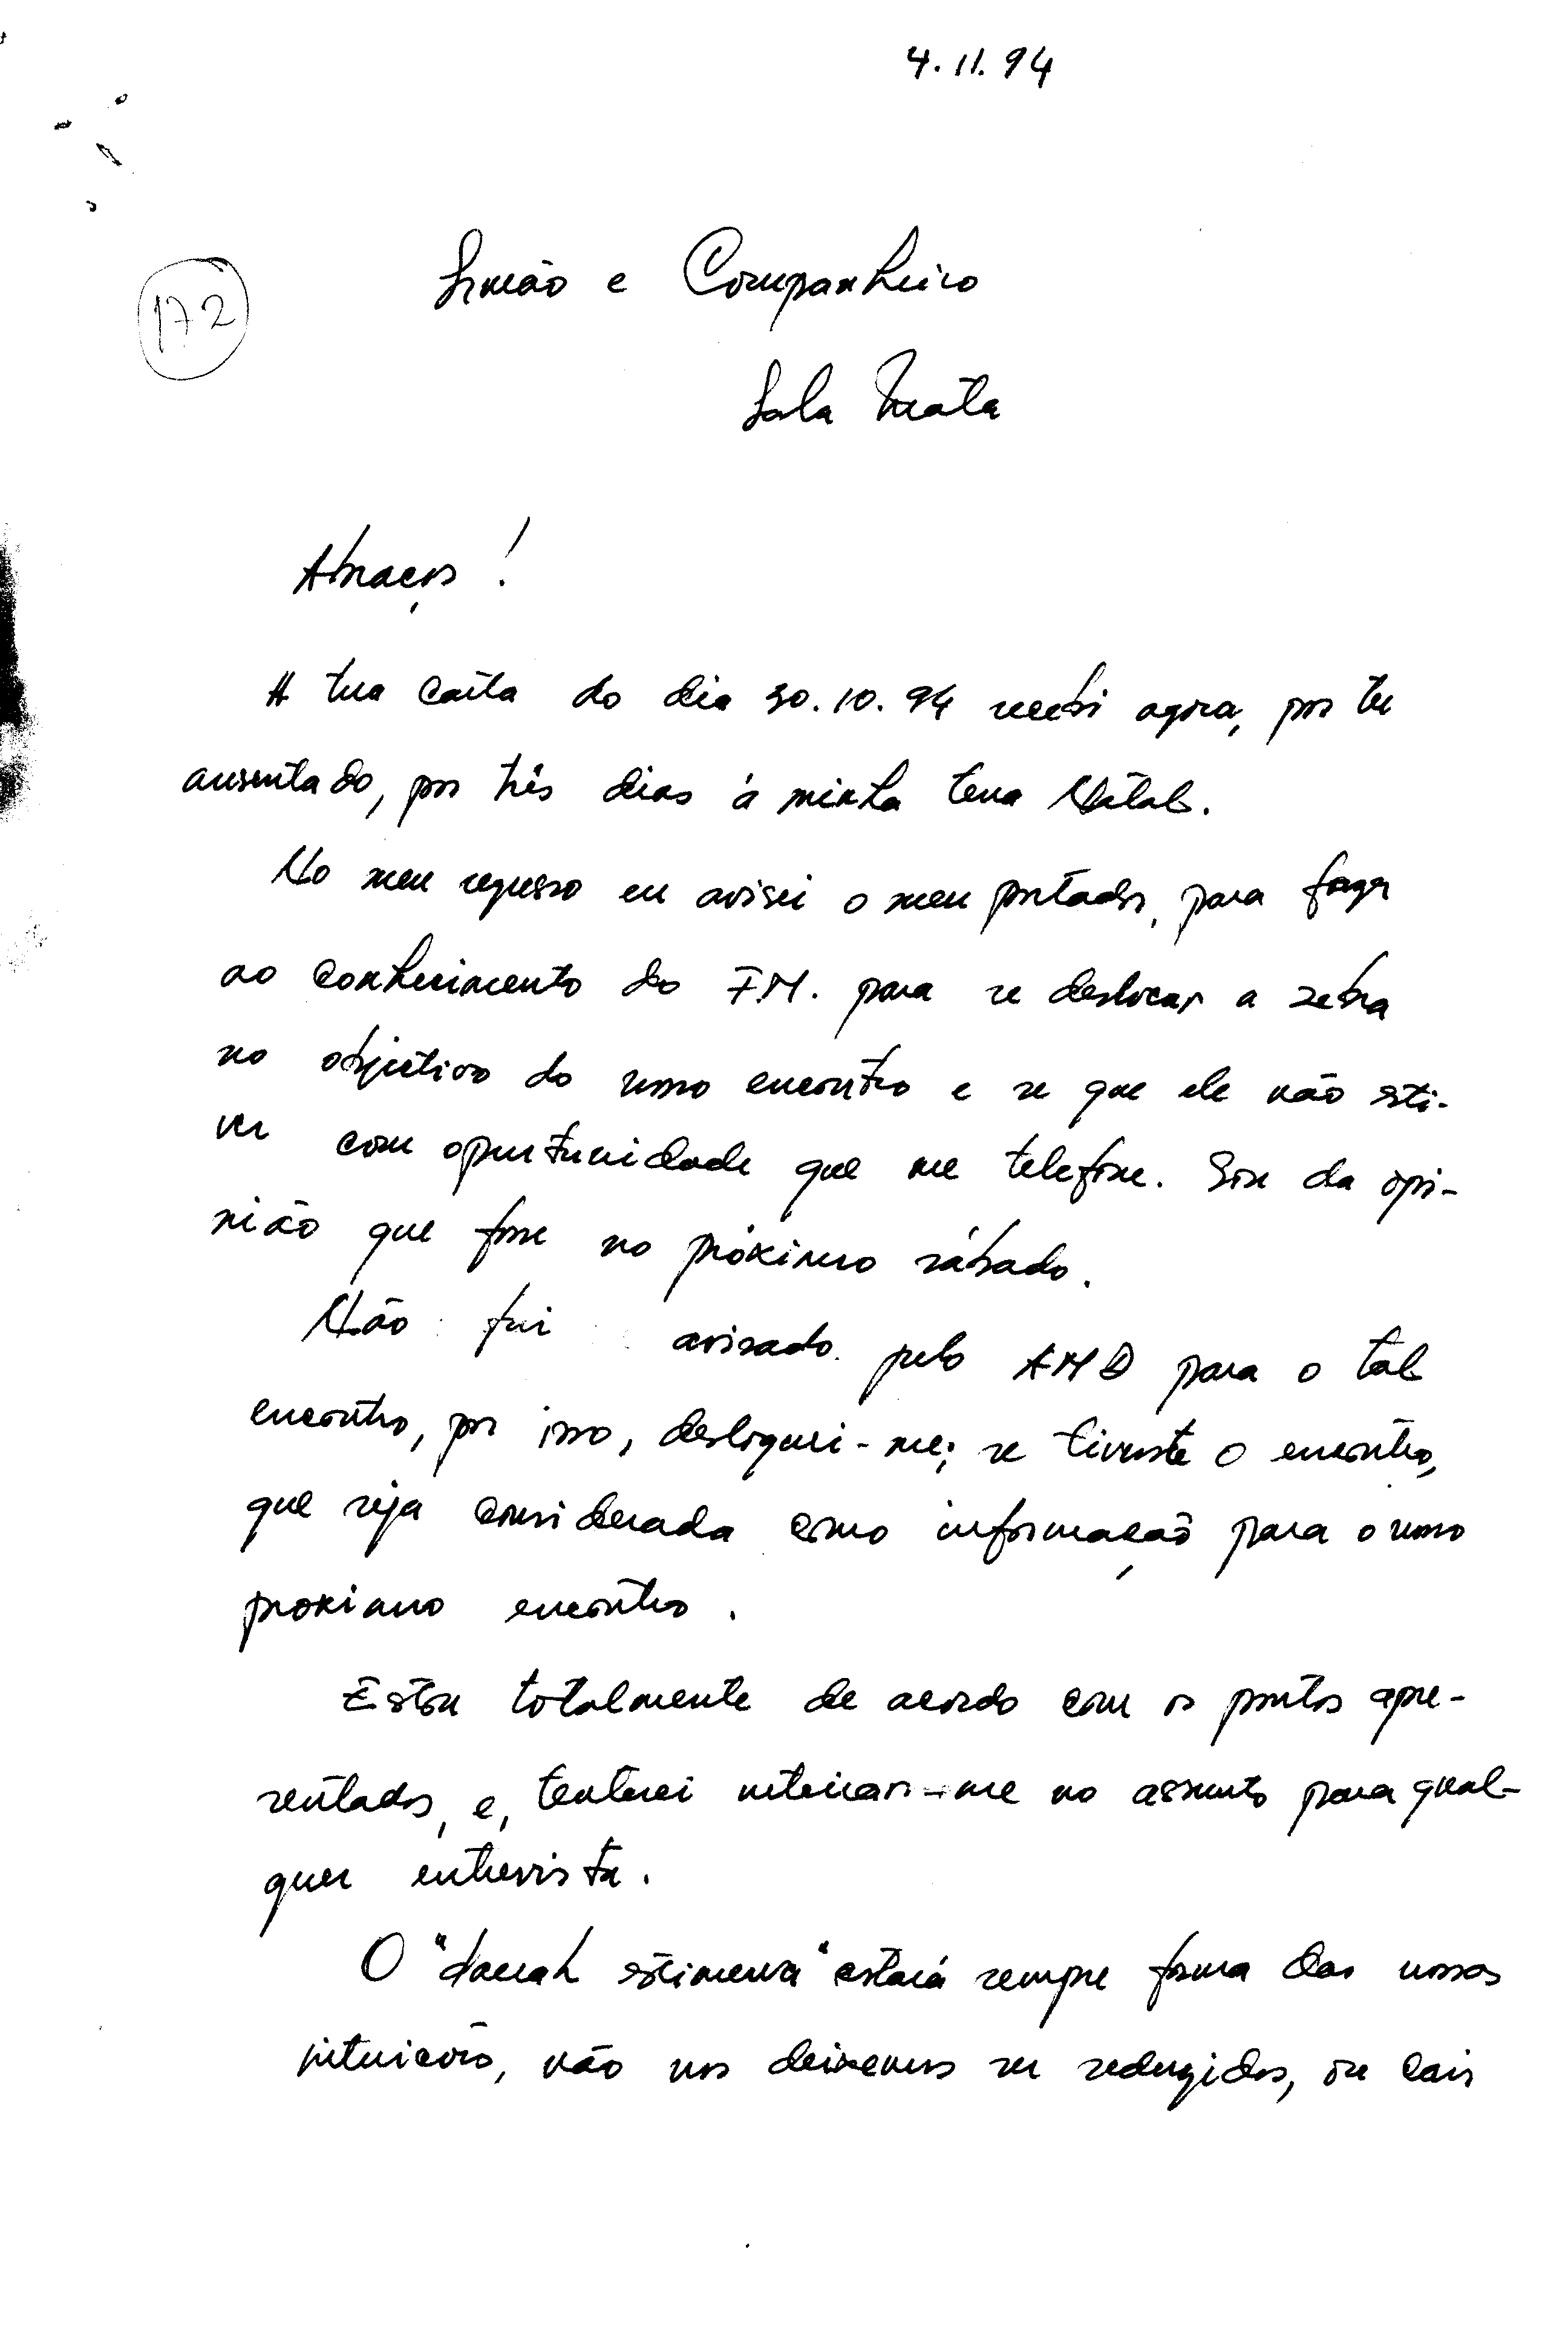 4.11.94
172
Irmão e Companheiro
Sala Mata
Abraços!
A tua carta do dia 30.10.94 recebi agora, por ter
ausentado, por três dias á minha terra Natal.
No meu regresso eu avisei o meu portador, para fazer
ao conhecimento do F.M. para se deslocar a
no objetivo do nosso encontro e se que ele não esti-
ver com oportunidade que me telefone. Sou da opi-
nião que fosse no próximo sábado.
Não fui avisado pelo AMD para o tal
encontro, por isso, desliguei-me; se tiveste o encontro,
que seja considerada como informação para o nosso
proximo encontro.
Estou totalmente de acordo com os pontos apre-
sentados, e, tentarei inteirar-me no assunto para qual-
quer entrevista.
O " " estará sempre forma das nossas
não nos deixemos ser ou cair